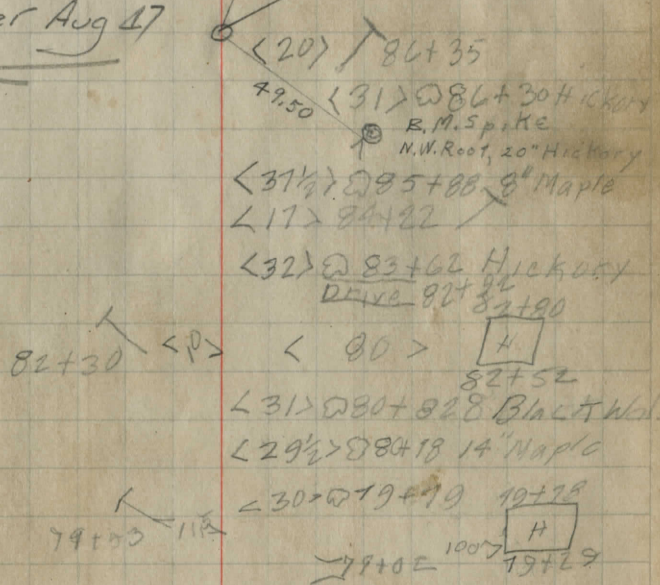 er Aug 17
<20> 86+35
49.50
<31> 86+30 Hickory
B.M. Spike
N.W. Root, 20" Hickory
<37½> 85+88 8" Maple
<17> 84+22
<32> 83+62 Hickory
Drive 82+92
82+80
82+30 <P> < 80 > H
82+52
<31> 80+82 8 Black Wal
<29½> 80+18 14" Maple
<30> 79+79 79+78
79+53
100> H
79+29